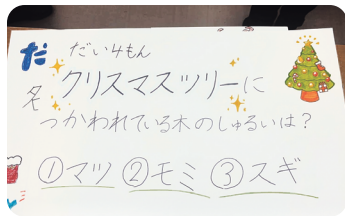 だ
だい4もん
クリスマスツリーに
つかわれている木のしゅるいは？
①マツ ②モミ ③スギ